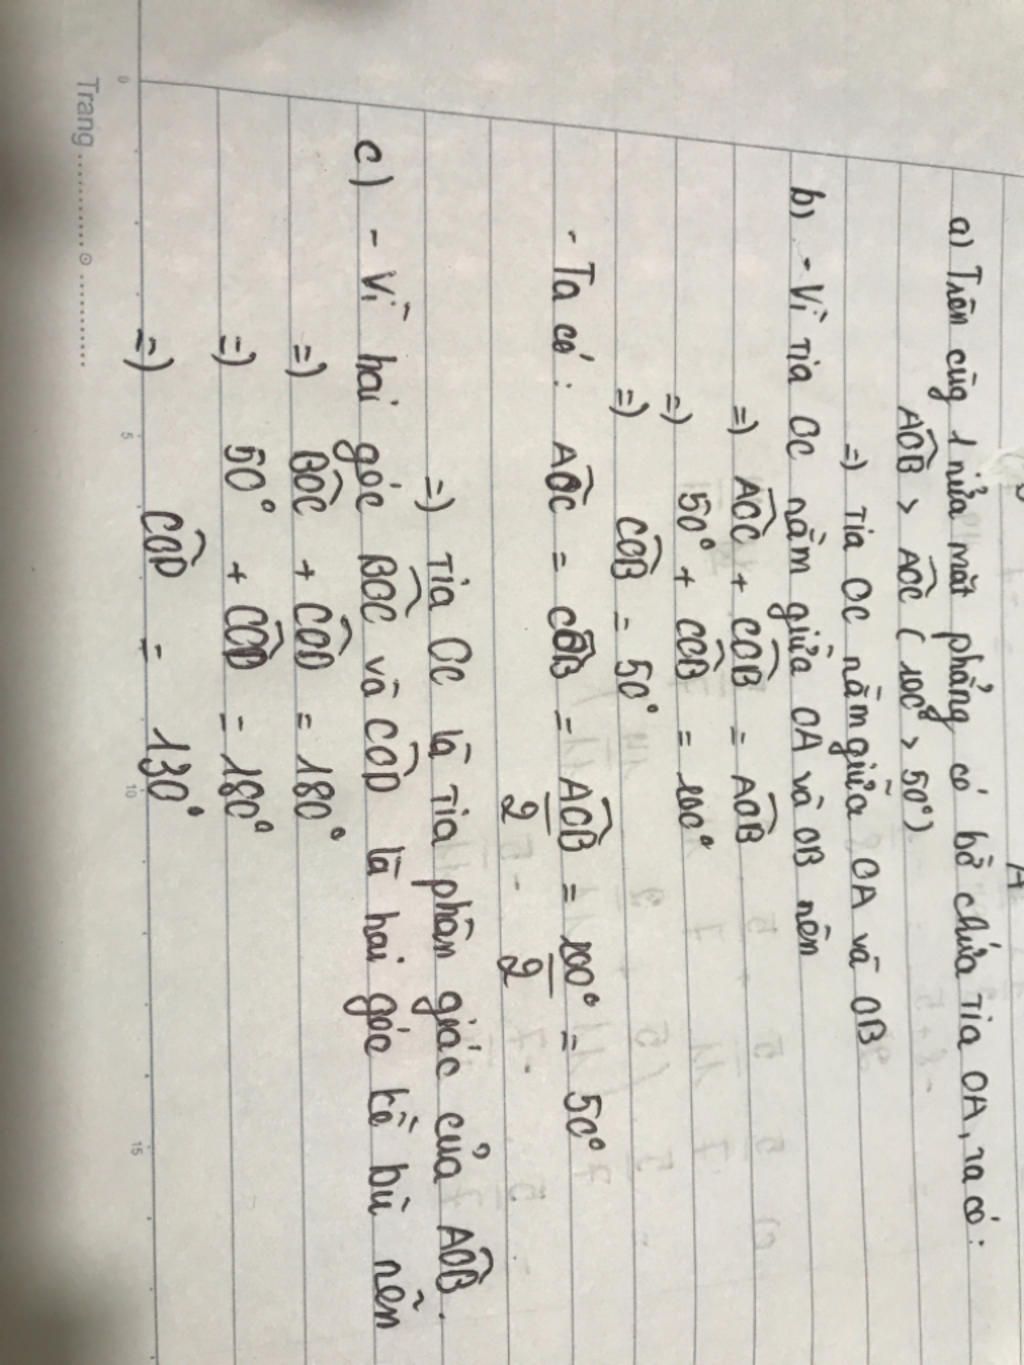 a) Trên cùg 1 nửa mặt phẳng có bờ chứa tia OA, ta có:
AOB > AOC (100° > 50°)
=) tia OC nằm giữa OA và OB
b) - Vì tia OC nằm giữa OA và OB nên
=) AOC + COB = AOB
=) 50° + COB = 100°
=) COB = 50°
- Ta có: AOC = COB = AOB/2 = 100°/2 = 50°
=) Tia OC là tia phân giác của AOB.
c) - Vì hai góc BOC và COD là hai góc kề bù nên
=) BOC + COD = 180°
=) 50° + COD = 180°
=) COD = 130°
Trang
0 5 10 15
A